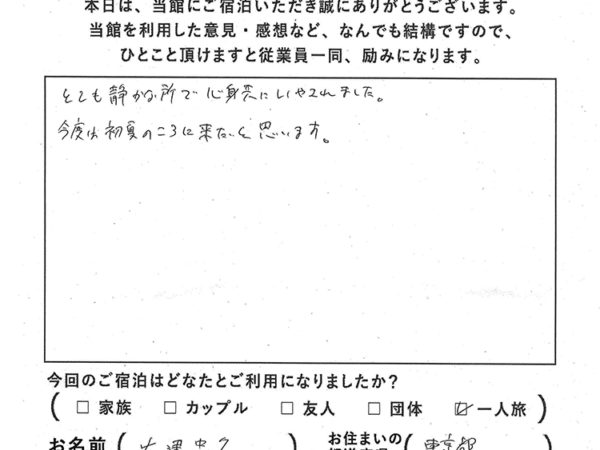 本日は、当館にご宿泊いただき誠にありがとうございます。
当館を利用した意見・感想など、なんでも結構ですので、
ひとこと頂けますと従業員一同、励みになります。
とても静かな所で心身共にいやされました。
今度は初夏のころに来たいと思います。
今回のご宿泊はどなたとご利用になりましたか?
(□家族 □カップル □友人 □団体 ☑一人旅)
お名前 (
お住まいの
(東京都